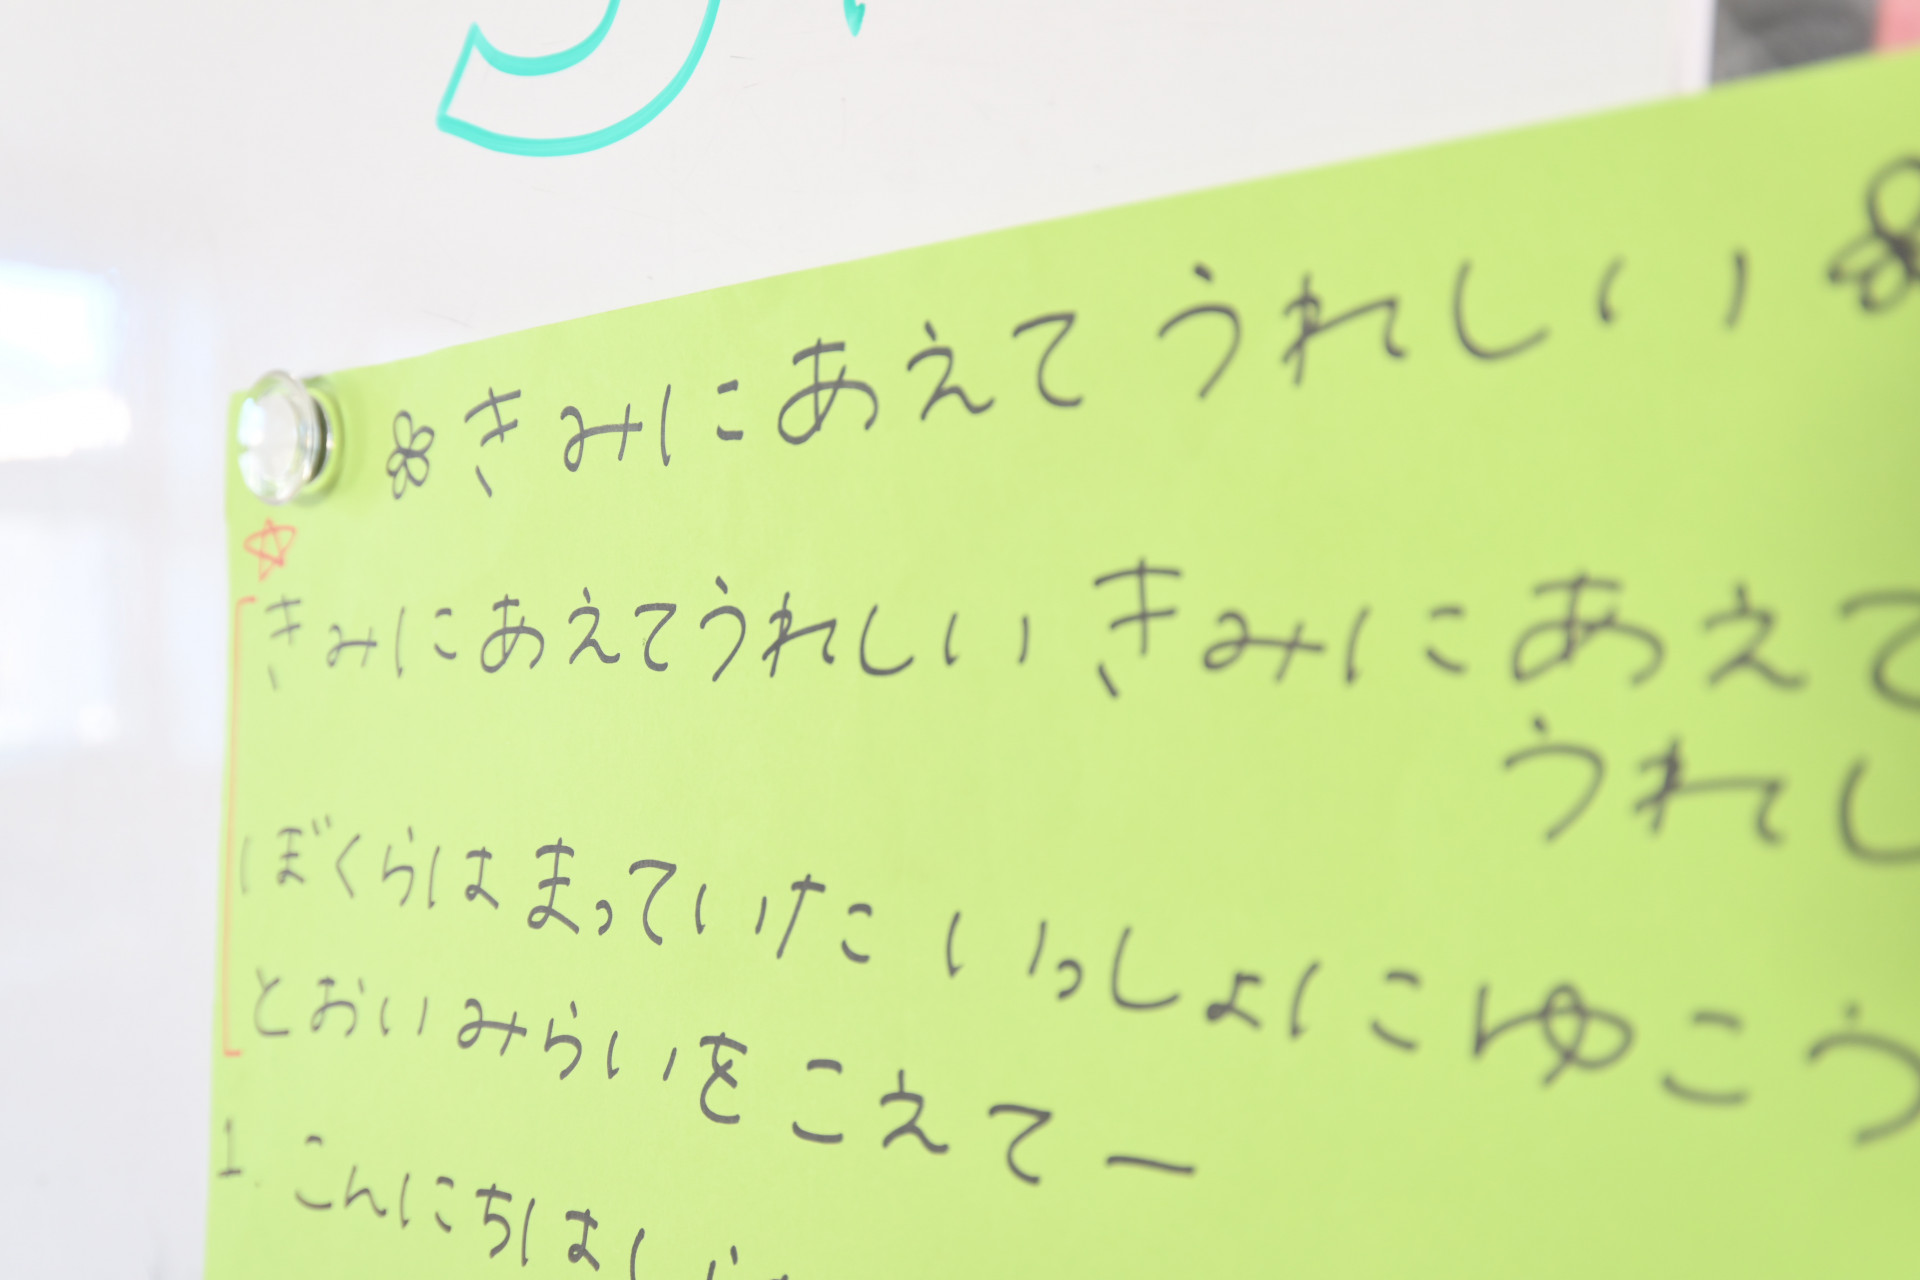 きみにあえて うれしい
きみにあえてうれしい きみにあえて
うれし
ぼくらはまっていたこ いっしょにゆこう
とおいみらいをこえてー
1. こんにちは